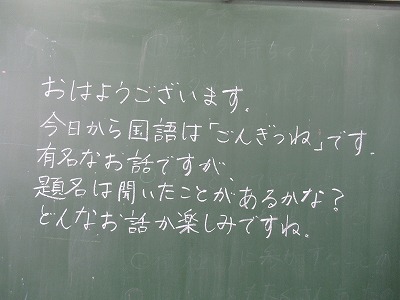 おはようございます。
今日から国語は「ごんぎつね」です。
有名なお話ですが、
題名は聞いたことがあるかな？
どんなお話か楽しみですね。